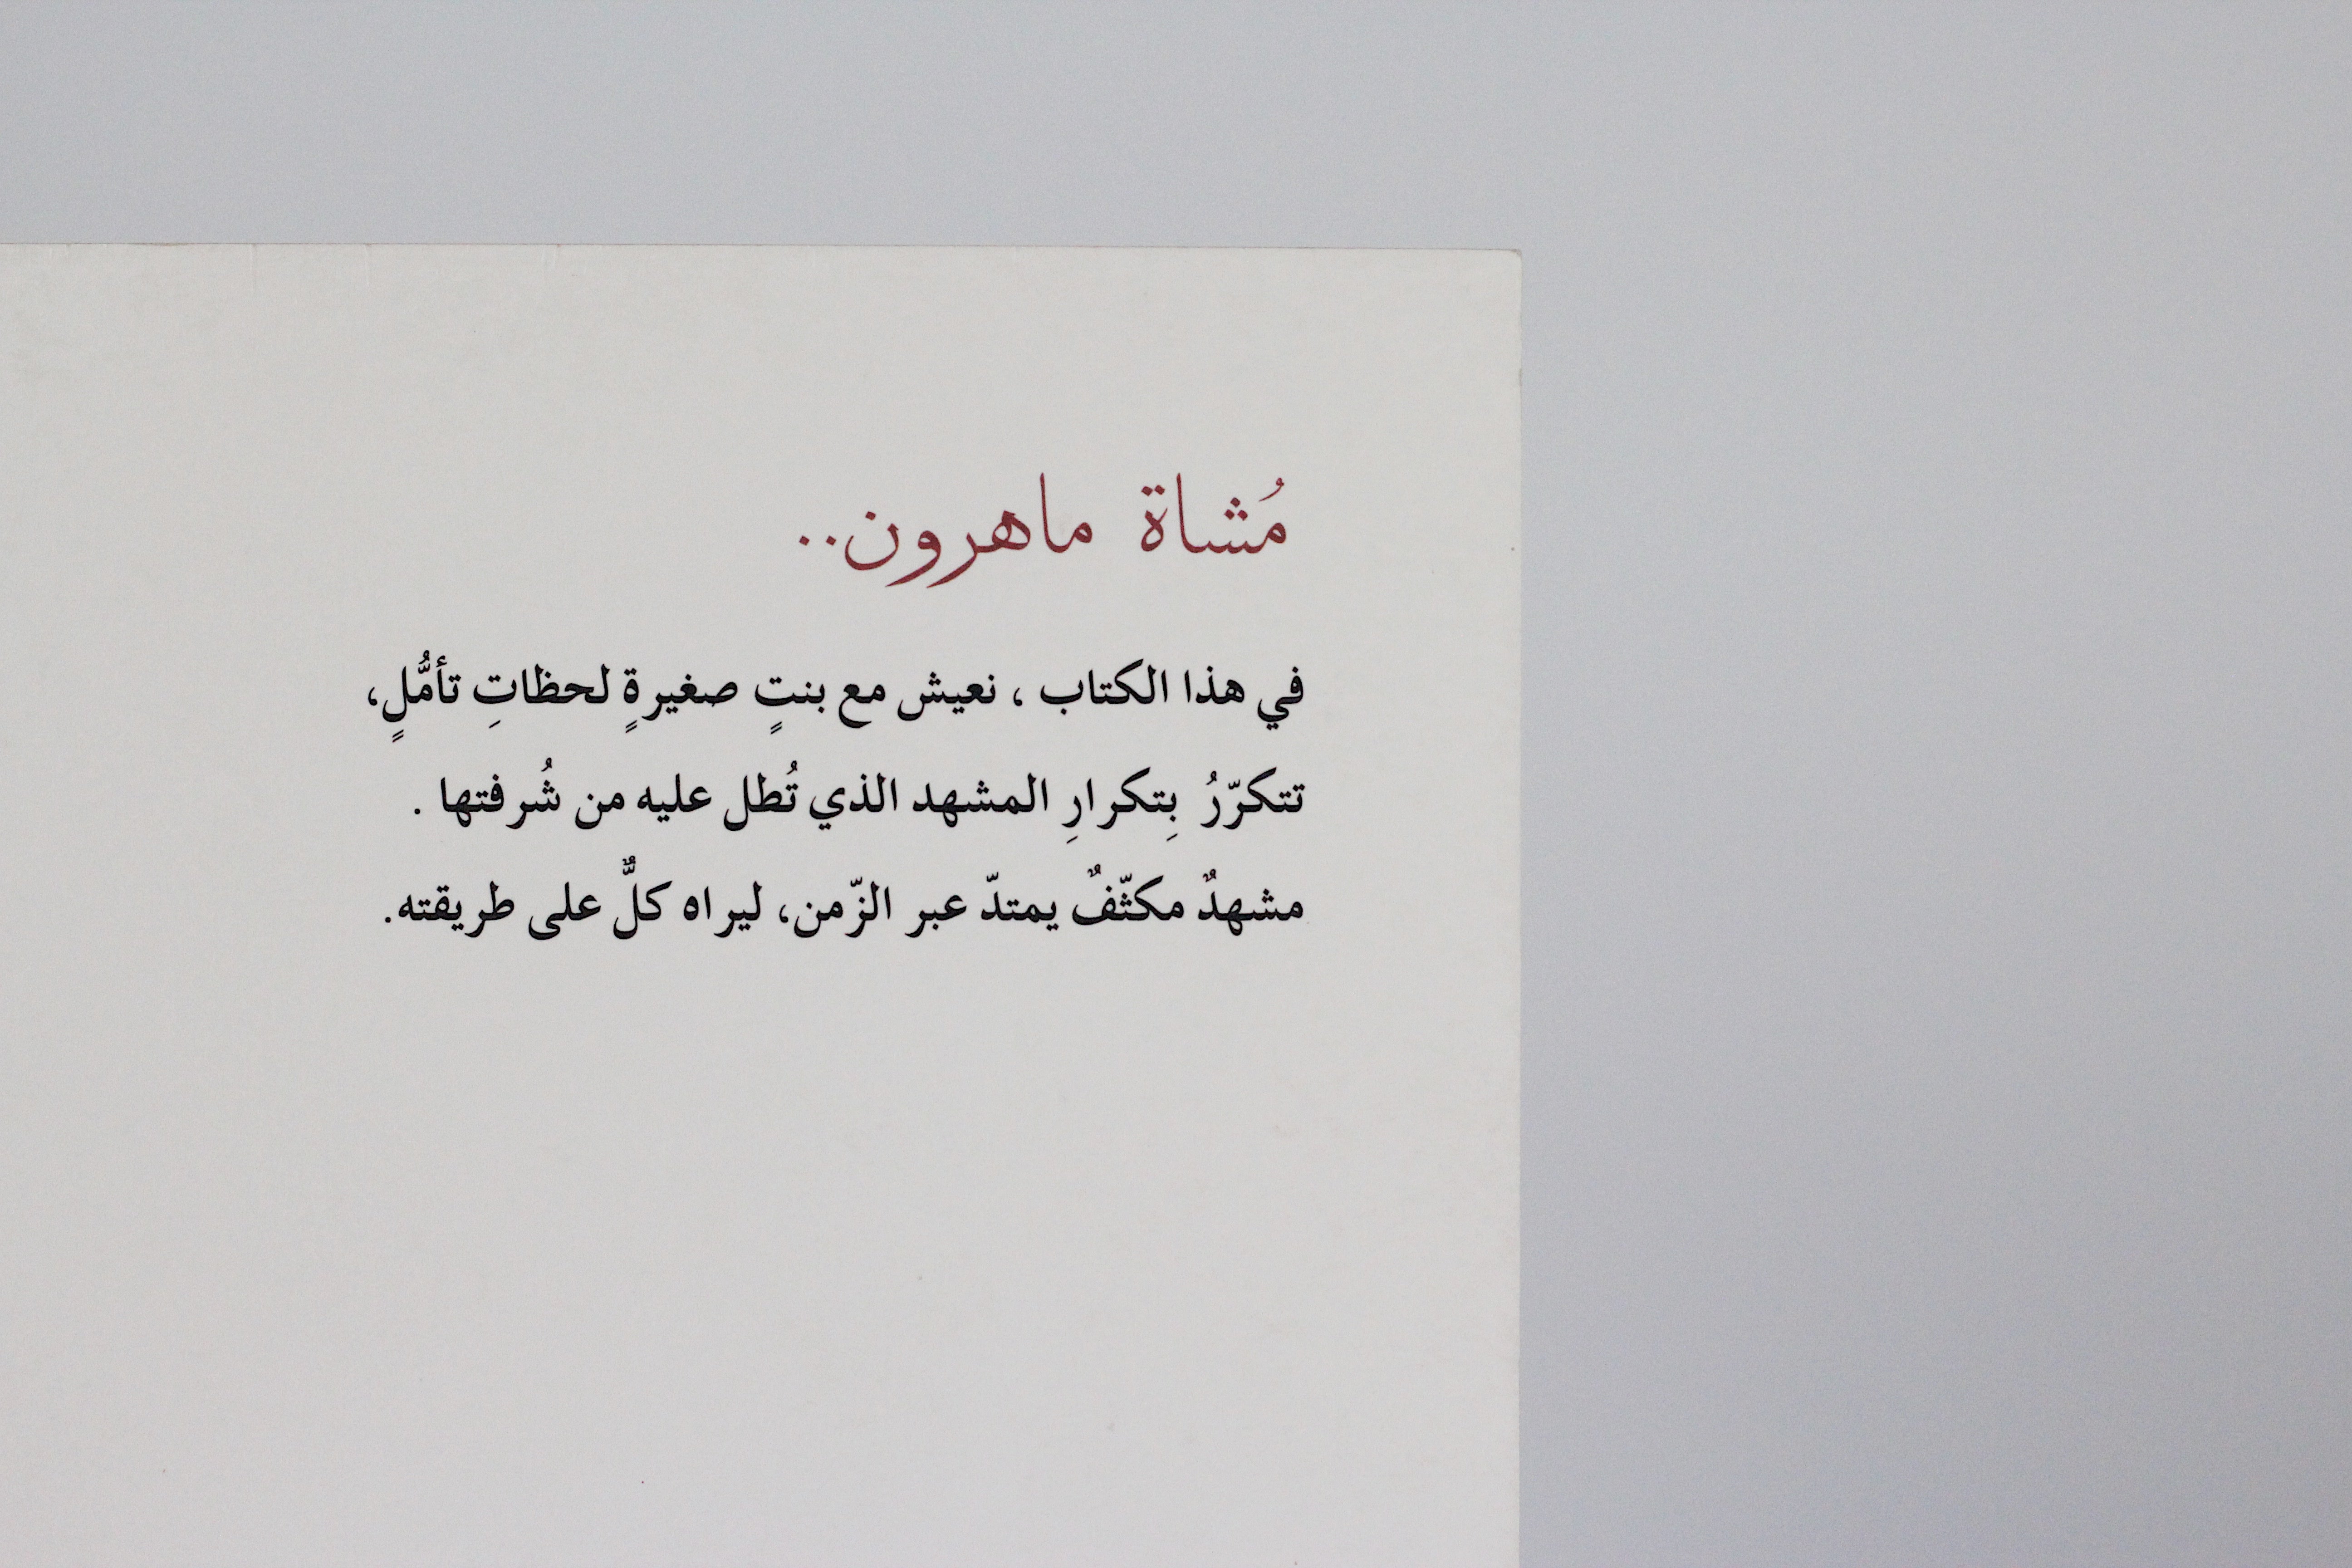 مُشاة ماهرون..
في هذا الكتاب ، نعيش مع بنتٍ صغيرةٍ لحظاتِ تأمُّلٍ،
تتكرّرُ بِتكرارِ المشهد الذي تُطل عليه من شُرفتها .
مشهدٌ مكثّفٌ يمتدّ عبر الزّمن، ليراه كلٌّ على طريقته.